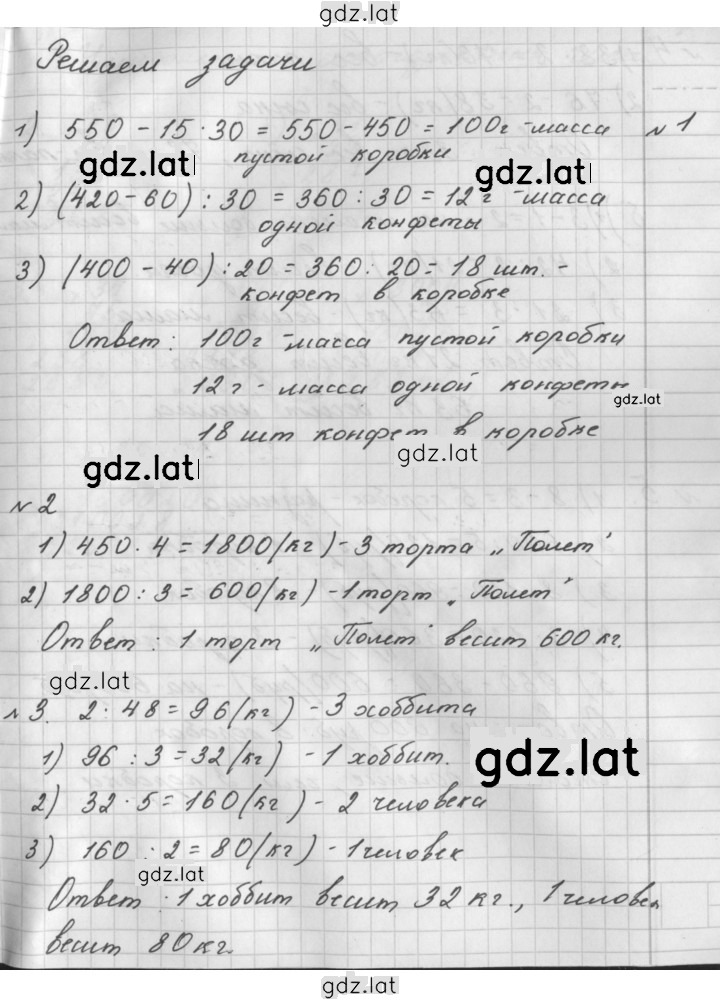 gdz.lat
Решаем задачи
1) 550 - 15 · 30 = 550 - 450 = 100г - масса №1
gdz.lat пустой коробки
2) (420 - 60) : 30 = 360 : 30 = 12 г - масса
gdz.lat
одной конфеты
3) (400 - 40) : 20 = 360 : 20 = 18 шт. -
конфет в коробке
Ответ: 100г - масса пустой коробки
12 г - масса одной конфеты
gdz.lat
18 шт конфет в коробке
gdz.lat
gdz.lat
№2
1) 450 · 4 = 1800 (кг) - 3 торта „Полет"
2) 1800 : 3 = 600 (кг) - 1 торт „Полет"
Ответ: 1 торт „Полет" весит 600 кг.
gdz.lat
№3. 2 : 48 = 96 (кг) - 3 хоббита
1) 96 : 3 = 32 (кг) - 1 хоббит.
gdz.lat
2) 32 · 5 = 160 (кг) - 2 человека
3) 160 : 2 = 80 (кг) - 1 человек
gdz.lat
Ответ: 1 хоббит весит 32 кг., 1 человек
весит 80 кг.
gdz.lat